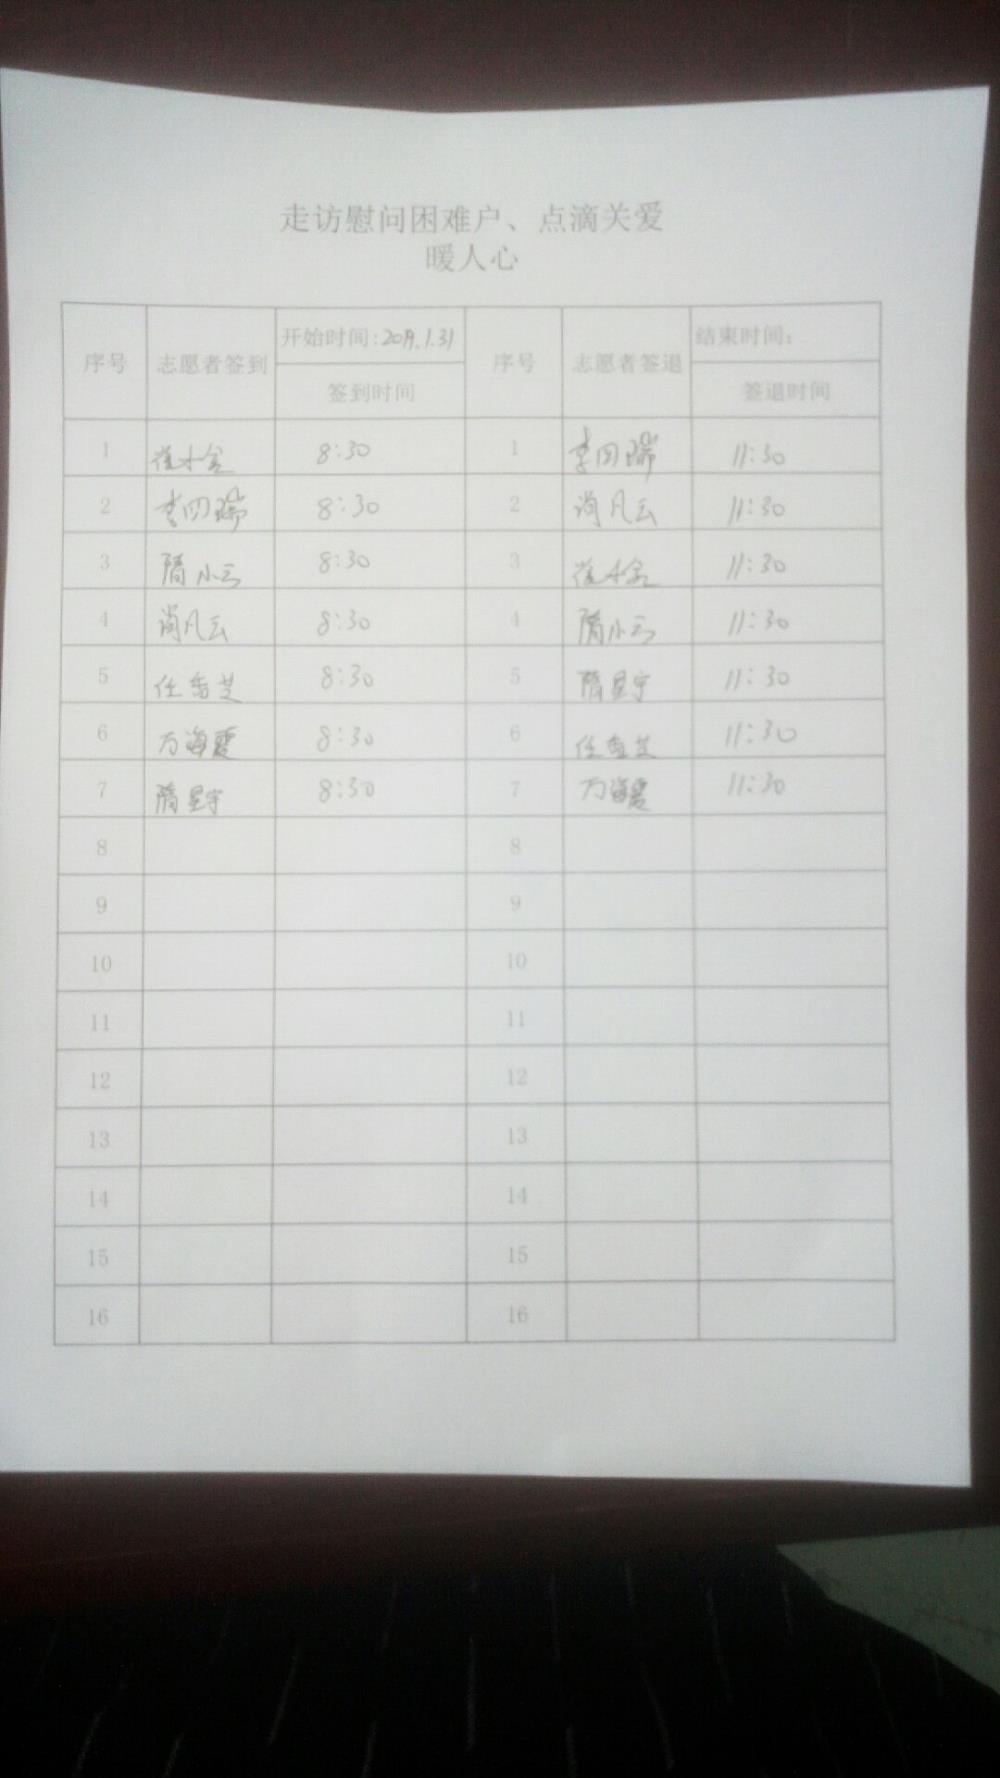 走访慰问困难户、点滴关爱
暖人心
序号 志愿者签到 开始时间:2019.1.31 序号 志愿者签退 结束时间:
签到时间 签退时间
1 8:30 1 李四瑞 11:30
2 李四瑞 8:30 2 尚凡云 11:30
3 隋小云 8:30 3 11:30
4 尚凡云 8:30 4 隋小云 11:30
5 任香芝 8:30 5 隋星宇 11:30
6 万海霞 8:30 6 任香芝 11:30
7 隋星宇 8:30 7 万海霞 11:30
8 8
9 9
10 10
11 11
12 12
13 13
14 14
15 15
16 16